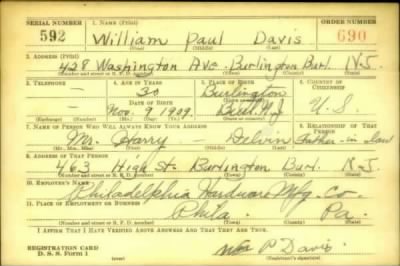 SERIAL NUMBER 1. NAME (Print) ORDER NUMBER
592 William Paul Davis 690
(First) (Middle) (Last)
2. ADDRESS (Print)
428 Washington Ave Burlington Burl. N.J.
(Number and street or R. F. D. number) (Town) (County) (State)
3. TELEPHONE 4. AGE IN YEARS 5. PLACE OF BIRTH 6. COUNTRY OF CITIZENSHIP
— 30 Burlington
DATE OF BIRTH (Town or county)
— Nov. 9, 1909. Burl. N.J. U.S.
(Exchange) (Number) (Mo.) (Day) (Yr.) (State or country)
7. NAME OF PERSON WHO WILL ALWAYS KNOW YOUR ADDRESS 8. RELATIONSHIP OF THAT PERSON
Mr. Harry — Father-in-law
(Mr., Mrs., Miss) (First) (Middle) (Last)
9. ADDRESS OF THAT PERSON
463 High St. Burlington Burl. N.J.
(Number and street or R. F. D. number) (Town) (County) (State)
10. EMPLOYER'S NAME
Philadelphia Hardware Mfg. Co.
11. PLACE OF EMPLOYMENT OR BUSINESS
Phila. Pa.
(Number and street or R. F. D. number) (Town) (County) (State)
I AFFIRM THAT I HAVE VERIFIED ABOVE ANSWERS AND THAT THEY ARE TRUE.
REGISTRATION CARD
D. S. S. Form 1 Wm P. Davis
(Registrant's signature)